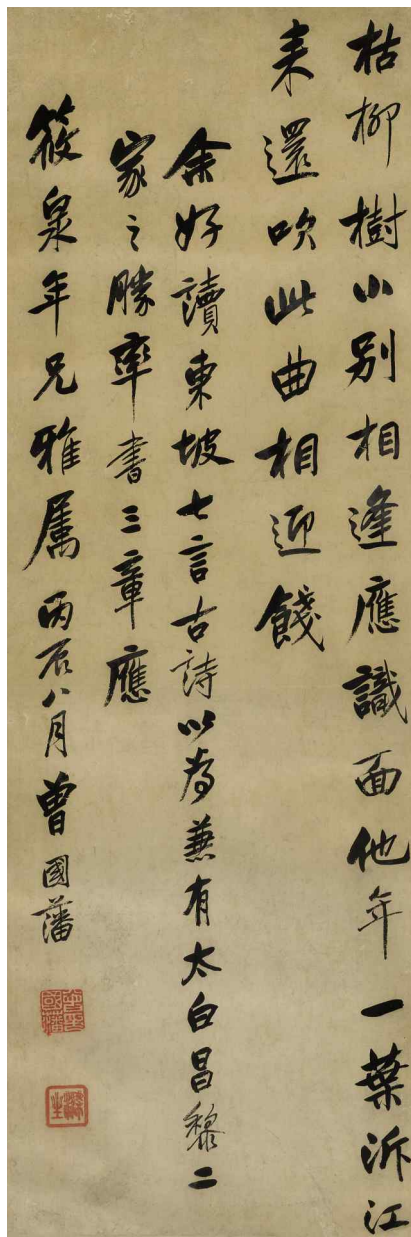 枯柳樹小別相逢應識面他年一葉泝江
来還吹此曲相迎餞
余好讀東坡七言古詩以為兼有太白昌黎二
家之勝率書三章應
筱泉年兄雅屬丙辰八月曾國藩